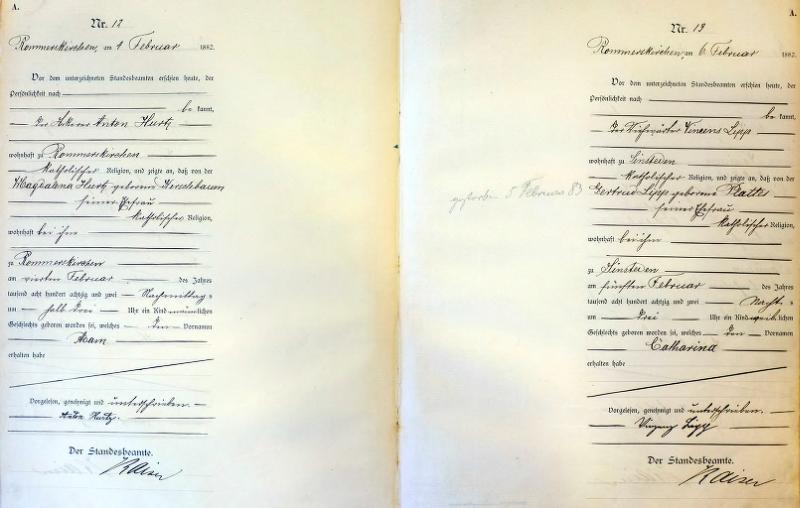 A.
Nr. 12
Rommerskirchen, am 4 Februar 1882.
Vor dem unterzeichneten Standesbeamten erschien heute, der
Persönlichkeit nach
be kannt,
der Ackerer Anton Hurtz
wohnhaft zu Rommerskirchen
katholischer Religion, und zeigte an, daß von der
Magdalena Hurtz geborene
seiner Ehefrau
katholischer Religion,
wohnhaft bei ihm
zu Rommerskirchen
am vierten Februar des Jahres
tausend acht hundert achtzig und zwei Nachmittags
um halb drei Uhr ein Kind männlichen
Geschlechts geboren worden sei, welches den Vornamen
Adam
erhalten habe
Vorgelesen, genehmigt und unterschrieben.
Anton Hurtz.
Der Standesbeamte.
Kaiser
A.
Nr. 13
Rommerskirchen, am 6. Februar 1882.
Vor dem unterzeichneten Standesbeamten erschien heute, der
Persönlichkeit nach
be kannt,
der Lipp
wohnhaft zu Sinsteden
katholischer Religion, und zeigte an, daß von der
Gertrud Lipp geborene
seiner Ehefrau
katholischer Religion,
wohnhaft bei ihm
zu Sinsteden
am fünften Februar des Jahres
tausend acht hundert achtzig und zwei Nachts
um drei Uhr ein Kind weiblichen
Geschlechts geboren worden sei, welches den Vornamen
Catharina
erhalten habe
Vorgelesen, genehmigt und unterschrieben.
Lipp
Der Standesbeamte.
Kaiser
gestorben 5 Februar 83